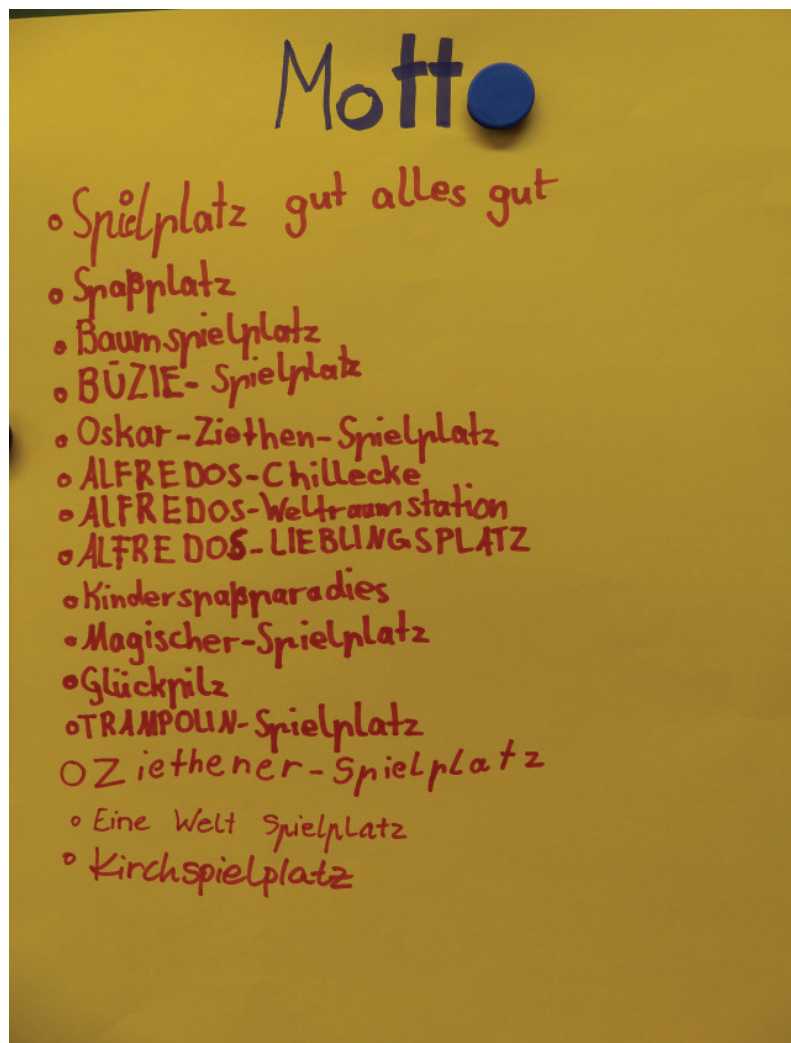 Motto
Spielplatz gut alles gut
Spaßplatz
Baumspielplatz
BÜZIE- Spielplatz
Oskar-Ziethen-Spielplatz
ALFREDOS-Chillecke
ALFREDOS-Weltraumstation
ALFREDOS-LIEBLINGSPLATZ
Kinderspaßparadies
Magischer-Spielplatz
Glückpilz
TRAMPOLIN-Spielplatz
Ziethener-Spielplatz
Eine Welt Spielplatz
Kirchspielplatz